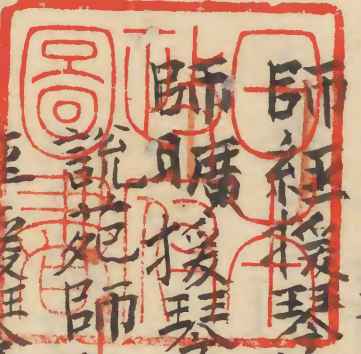 師經援琴
師曠援琴
說苑師
援琴